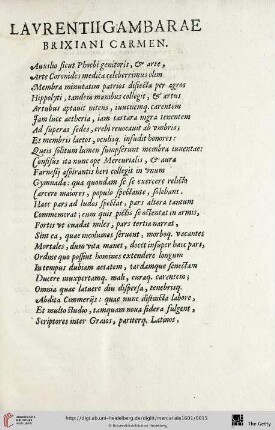 LAVRENTII GAMBARAE
BRIXIANI CARMEN.
Auxilio sicut Phoebi genitoris, & arte,
Arte Coronides medica celeberrimus olim
Membra minutatim patrios disiecta per agros
Hippolyti, tandem manibus collegit, & artus
Artubus aptauit nitens, iunctumq. carentem
Iam luce aetheria, iam tartara nigra tenentem
Ad superas sedes, orbi reuocauit ab vmbris;
Et membris laetos, oculisq. infudit honores:
Queis solitum lumen sumpserunt membra iuuentae:
Consilijs ita nunc ope Mercurialis, & aura
Farnesij aspirantis heri collegit in vnum
Gymnada: qua quondam se se exercere relicto
Carcere maiores, populo spectante, solebant.
Haec pars ad ludos spectat, pars altera tantum
Commemorat; cum quis pictis se ostentat in armis,
Fortis vt euadat miles, pars tertia narrat,
Sint ea, quae incolumes seruent, morboq. vacantes
Mortales, dum vita manet, docet insuper haec pars,
Ordine quo possint homines extendere longum
In tempus dubiam aetatem, tardamque senectam
Ducere inexpertamq. mali, curaq. carentem;
Omnia quae latuere diu dispersa, tenebrisq.
Abdita Cimmerijs: quae nunc distincta labore,
Et multo studio, tamquam noua sidera fulgent,
Scriptores inter Graios, parterq. Latinos,
http://digi.ub.uni-heidelberg.de/diglit/mercuriale1601/0015
© Universitätsbibliothek Heidelberg
The Getty